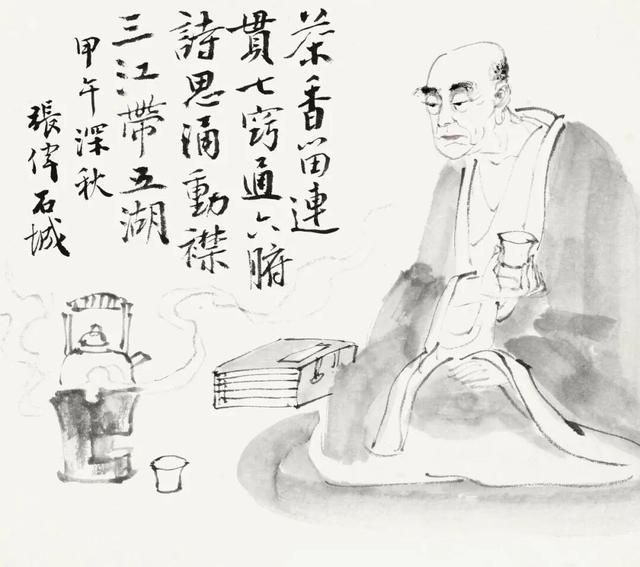 茶香留連
貫七窍通六腑
詩思涌動襟
三江帶五湖
甲午深秋
張偉石城